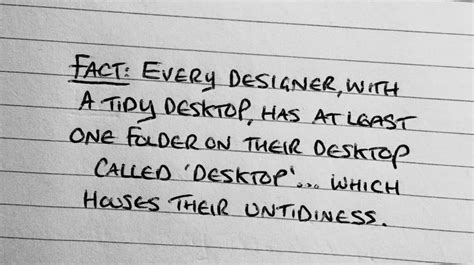 FACT: EVERY DESIGNER, WITH
A TIDY DESKTOP, HAS AT LEAST
ONE FOLDER ON THEIR DESKTOP
CALLED 'DESKTOP'... WHICH
HOUSES THEIR UNTIDINESS.